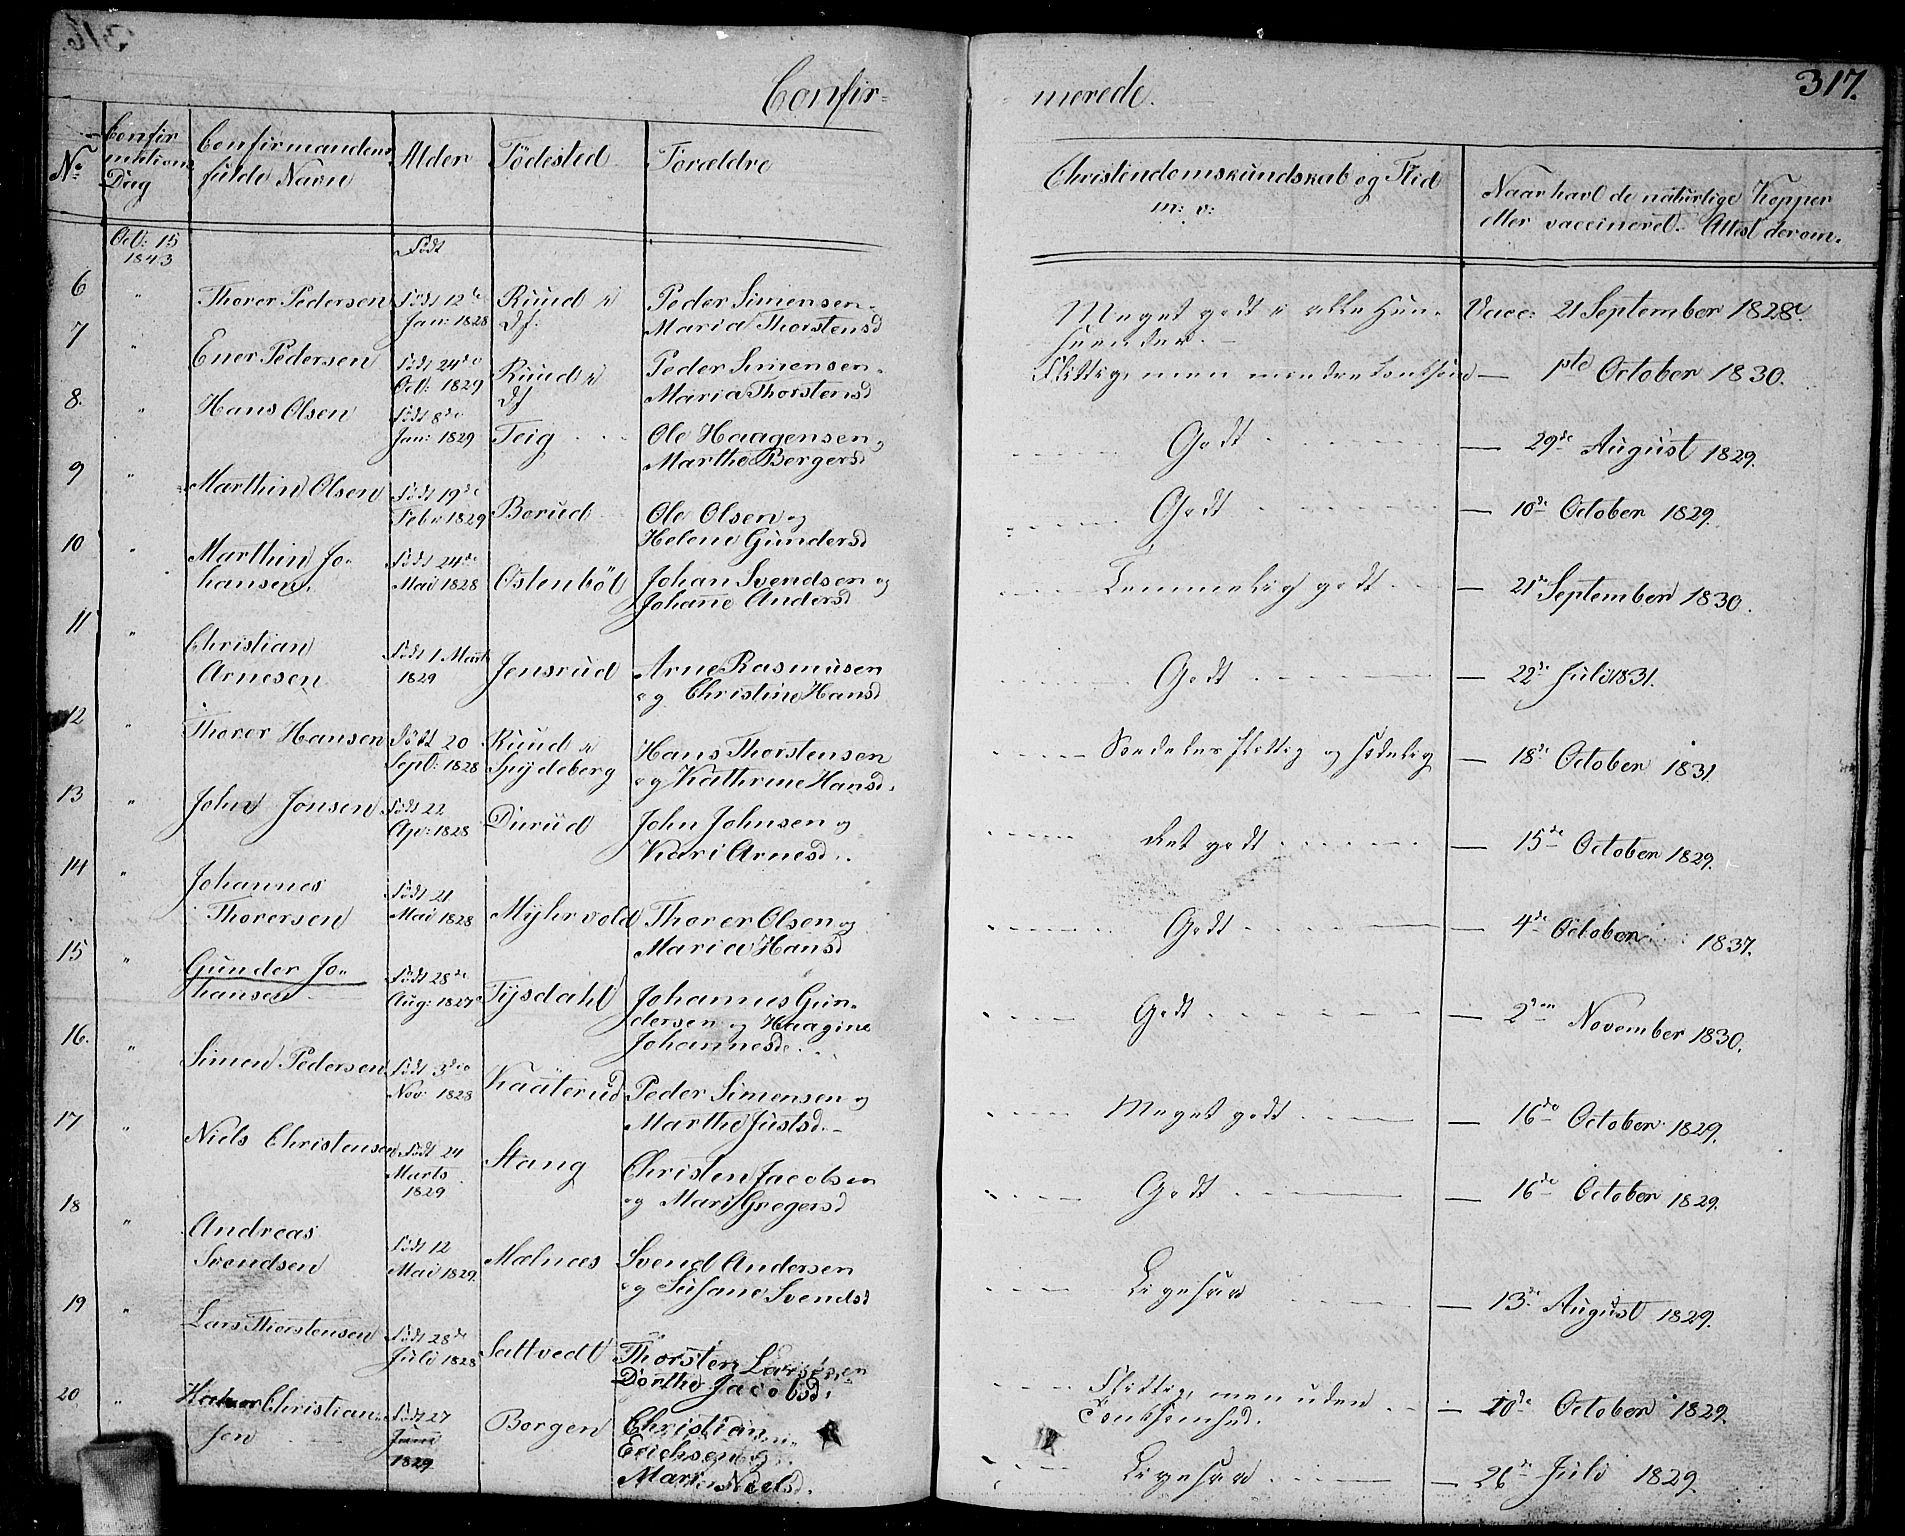 Confir-
merede.
317.
No
Confirmations Dag
Confirmandens fulde Navn
Alder
Födested
Forældre
Christendomskundskab og Flid m: v:
Naar havt de naturlige Kopper
eller vaccineret. Attest derom.
Oct: 15
1843
Födt
6 " Thorer Pedersen Födt 12te Ruud i Peder Simensen Meget godt i alle Hen- Vacc: 21 September 1828.
Jan: 1828 Df: Maria Thorstensd seender.
7 " Ener Pedersen Födt 24de Ruud i Peder Simensen Flittig, men mindre — 1ste October 1830.
Oct: 1829 Df Maria Thorstensd
8. " Hans Olsen Födt 8de Teig Ole Haagensen og Godt — 29de August 1829.
Jan: 1829 Marthe Bergersd
9 " Marthin Olsen Födt 19de Borud Ole Olsen og Godt — 10de October 1829.
Febr 1829 Helene Gundersd
10 " Marthin Jo- Födt 24de Ostenböl Johan Svendsen og Temmelig godt — 21de September 1830.
hansen. Mai 1828 Johanne Andersd
11 " Christian Födt 1 Marts Jensrud Arne Rasmusen Godt — 22de Juli 1831.
Arnesen 1829 og Christine Hansd
12 " Thorer Hansen Födt 20 Ruud i Hans Thorstensen Særdeles flittig og sædelig — 18de October 1831
Sept: 1828 Spydeberg og Kathrine Hansd.
13 " John Jonsen Födt 22 Durud John Johnsen og Ret godt — 15de October 1829.
Apr: 1828 Kari Arnesd.
14 " Johannes Födt 21 Myhrvold Thorer Olsen og Godt — 4de October 1837.
Thorersen Mai 1828 Maria Hansd
15 " Gunder Jo- Födt 28de Tysdahl Johannes Gun- Godt — 2den November 1830.
hansen Aug: 1827 dersen og Haagine
Johannesd.
16. " Simen Pedersen Födt 3die Kaaterud Peder Simensen og Meget godt — 16de October 1829.
Nov: 1828 Marthe Justsd.
17 " Niels Christensen Födt 24 Stang Christen Jacobsen Godt — 16de October 1829.
Marts og Mari Gregersd
1829
18 " Andreas Födt 12 Malnæs Svend Andersen Ligesaa — 13de August 1829.
Svendsen Mai 1829. og Susane Svendsd
19 " Lars Thorstensen Födt 28de Sattvedt Thorsten Larssen Flittig, men uden — 10de October 1829.
Juli 1828 Dorthe Jacobsd.
20 " Christian- Födt 27 Borgen Christian Ligesaa — 26de Juli 1829.
sen Juni Erichsen og
1829 Mari Nielsd.